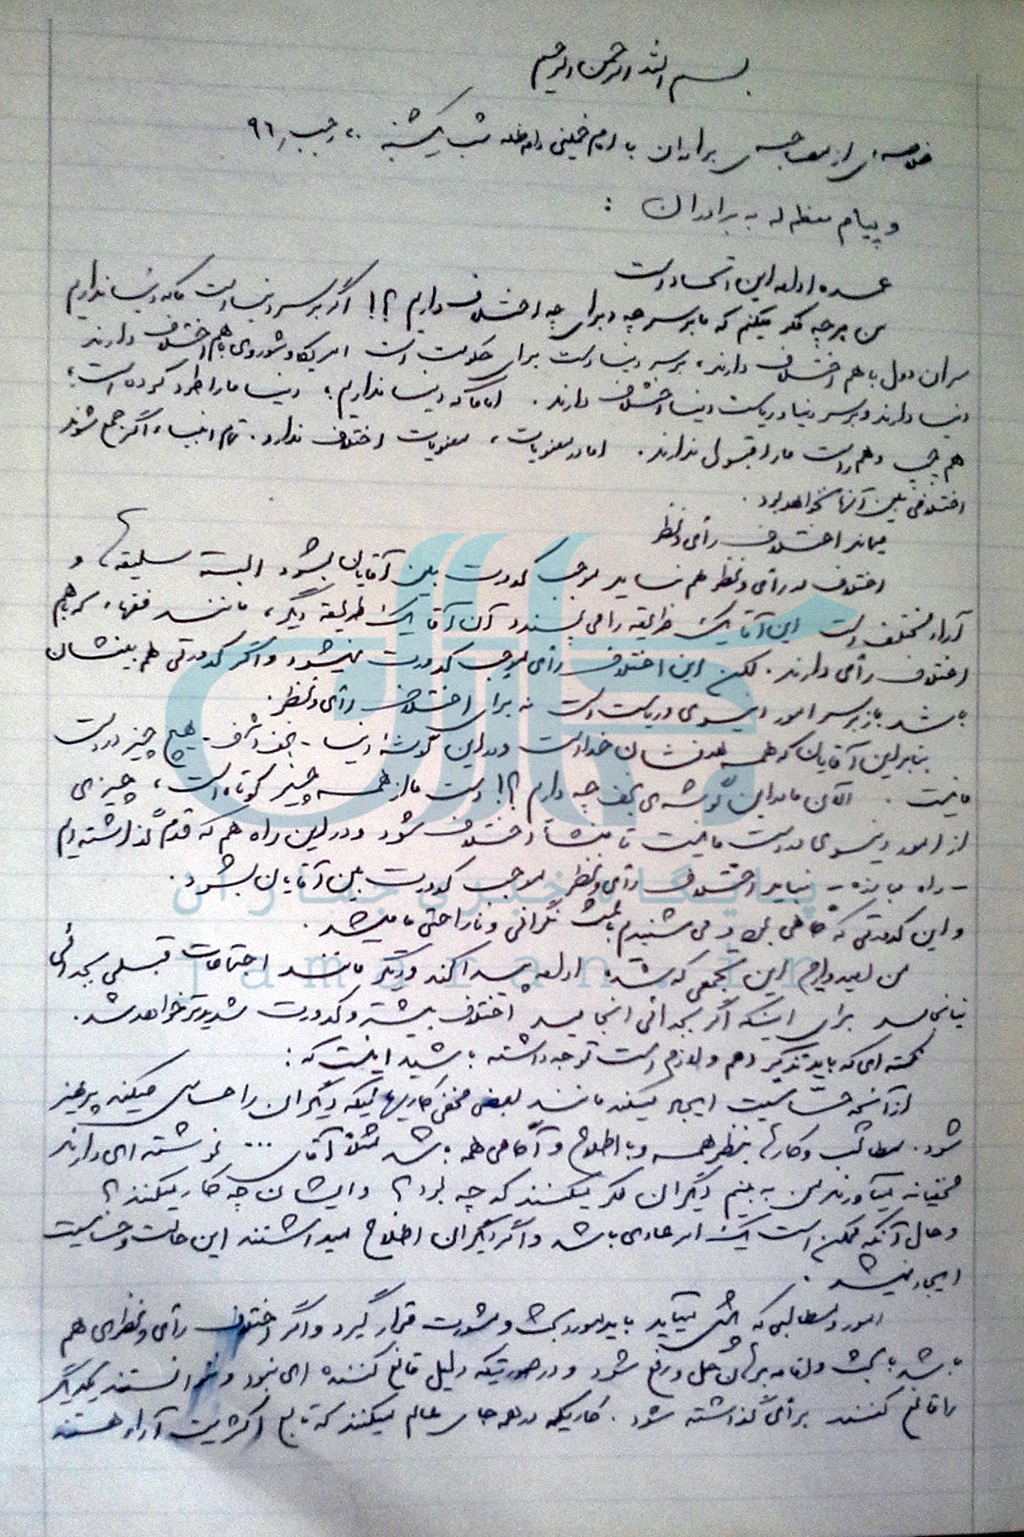 بسم الله الرحمن الرحیم
خلاصه‌ی از مصاحبه‌ی برادران با امام خمینی دام ظله شب یکشنبه ۲۰ رجب ۹۶
و پیام معظم له به برادران :
عمده ادامه این اتحاد است
من هر چه فکر میکنم که ما بر سر چه و برای چه اختلاف داریم ؟! اگر بر سر دنیا است ما که دنیا نداریم
سران دول با هم اختلاف دارند، بر سر دنیا است برای حکومت است امریکا و شوروی با هم اختلاف دارند
دنیا دارند و بر سر دنیا و ریاست دنیا اختلاف دارند . اما ما که دنیا نداریم، دنیا ما را طرد کرده است،
هم چپ و هم راست ما را قبول ندارند . اما در معنویات، معنویات اختلاف ندارد . تمام انبیاء اگر جمع شوند
اختلافی بین آنها نخواهد بود .
میماند اختلاف رأی و نظر
اختلاف در رأی و نظر هم نباید موجب کدورت بین آقایان بشود البته سلیقه‌ها و
آراء مختلف است این آقا یک طریقه را می پسندد آن آقا یک طریقه دیگر، مانند فقهاء که با هم
اختلاف رأی دارند . لکن این اختلاف رأی موجب کدورت نمیشود و اگر کدورتی هم بینشان
باشد باز بر سر امور دنیوی و ریاست است نه برای اختلاف رأی و نظر .
بنابراین آقایان که همه هدفشان خدا است و در این گوشه دنیا - نجف اشرف - هیچ چیز در دست
ما نیست . الآن ما در این گوشه‌ی نجف چه داریم ؟! دست ما از همه چیز کوتاه است ، چیزی
از امور دنیوی در دست ما نیست تا منشأ اختلاف شود و در این راه هم که قدم گذاشته‌ایم
- راه مبارزه - نباید اختلاف رأی و نظر موجب کدورت بین آقایان بشود .
و این کدورتی که گاهی بود و می شنیدم باعث نگرانی و ناراحتی ما میشد .
من امیدوارم این تجمعی که شده ادامه پیدا کند و دیگر مانند اجتماعات قبلی بجدائی
نیانجامد برای اینکه اگر بجدائی انجامید اختلاف بیشتر و کدورت شدیدتر خواهد شد .
نکته‌ای که باید تذکر دهم و لازم است توجه داشته باشید اینست که :
از آنچه حساسیت ایجاد میکند مانند بعضی مخفی کاریها که دیگران را حساس میکند پرهیز
شود . مطالب و کارها بنظر همه و با اطلاع و آگاهی همه باشد مثلا آقای ... نوشته‌ای دارند
مخفیانه میآورند من به بینم دیگران فکر میکنند که چه بود ؟ و ایشان چه کار میکنند ؟
و حال آنکه ممکن است یک امر عادی باشد و اگر دیگران اطلاع میداشتند این حالت و حساسیت
ایجاد نمیشد .
امور و مطالبی که پیش میآید باید مورد بحث و مشورت قرار گیرد و اگر اختلاف رأی و نظری هم
باشد با بحث و اقامه برهان حل و رفع شود و در صورتیکه دلیل قانع کننده‌ای نبود و نتوانستند یکدیگر
را قانع کنند برأی گذاشته شود . کاریکه در همه جای عالم میکنند که تابع اکثریت آراء هستند